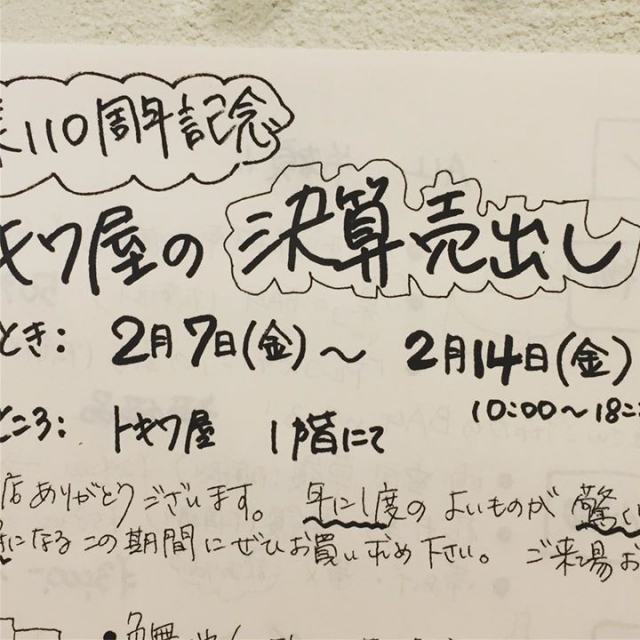 110周年記念
キワ屋の 決算売出し
とき: 2月7日(金)～ 2月14日(金)
10:00～18:
ところ: トキワ屋 1階にて
店ありがとうございます。 年に1度の よいものが 驚く
になる この期間に ぜひお買い求め 下さい。 ご来場お